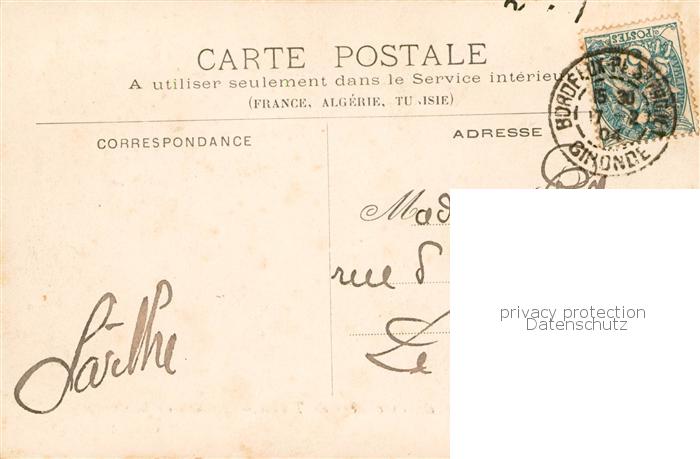 CARTE POSTALE
A utiliser seulement dans le Service intérieu
(FRANCE, ALGÉRIE, TUNISIE)
CORRESPONDANCE
ADRESSE
POSTES
BORDEAUX
GIRONDE
04
Mad
rue d
Le
Sarthe
privacy protection
Datenschutz